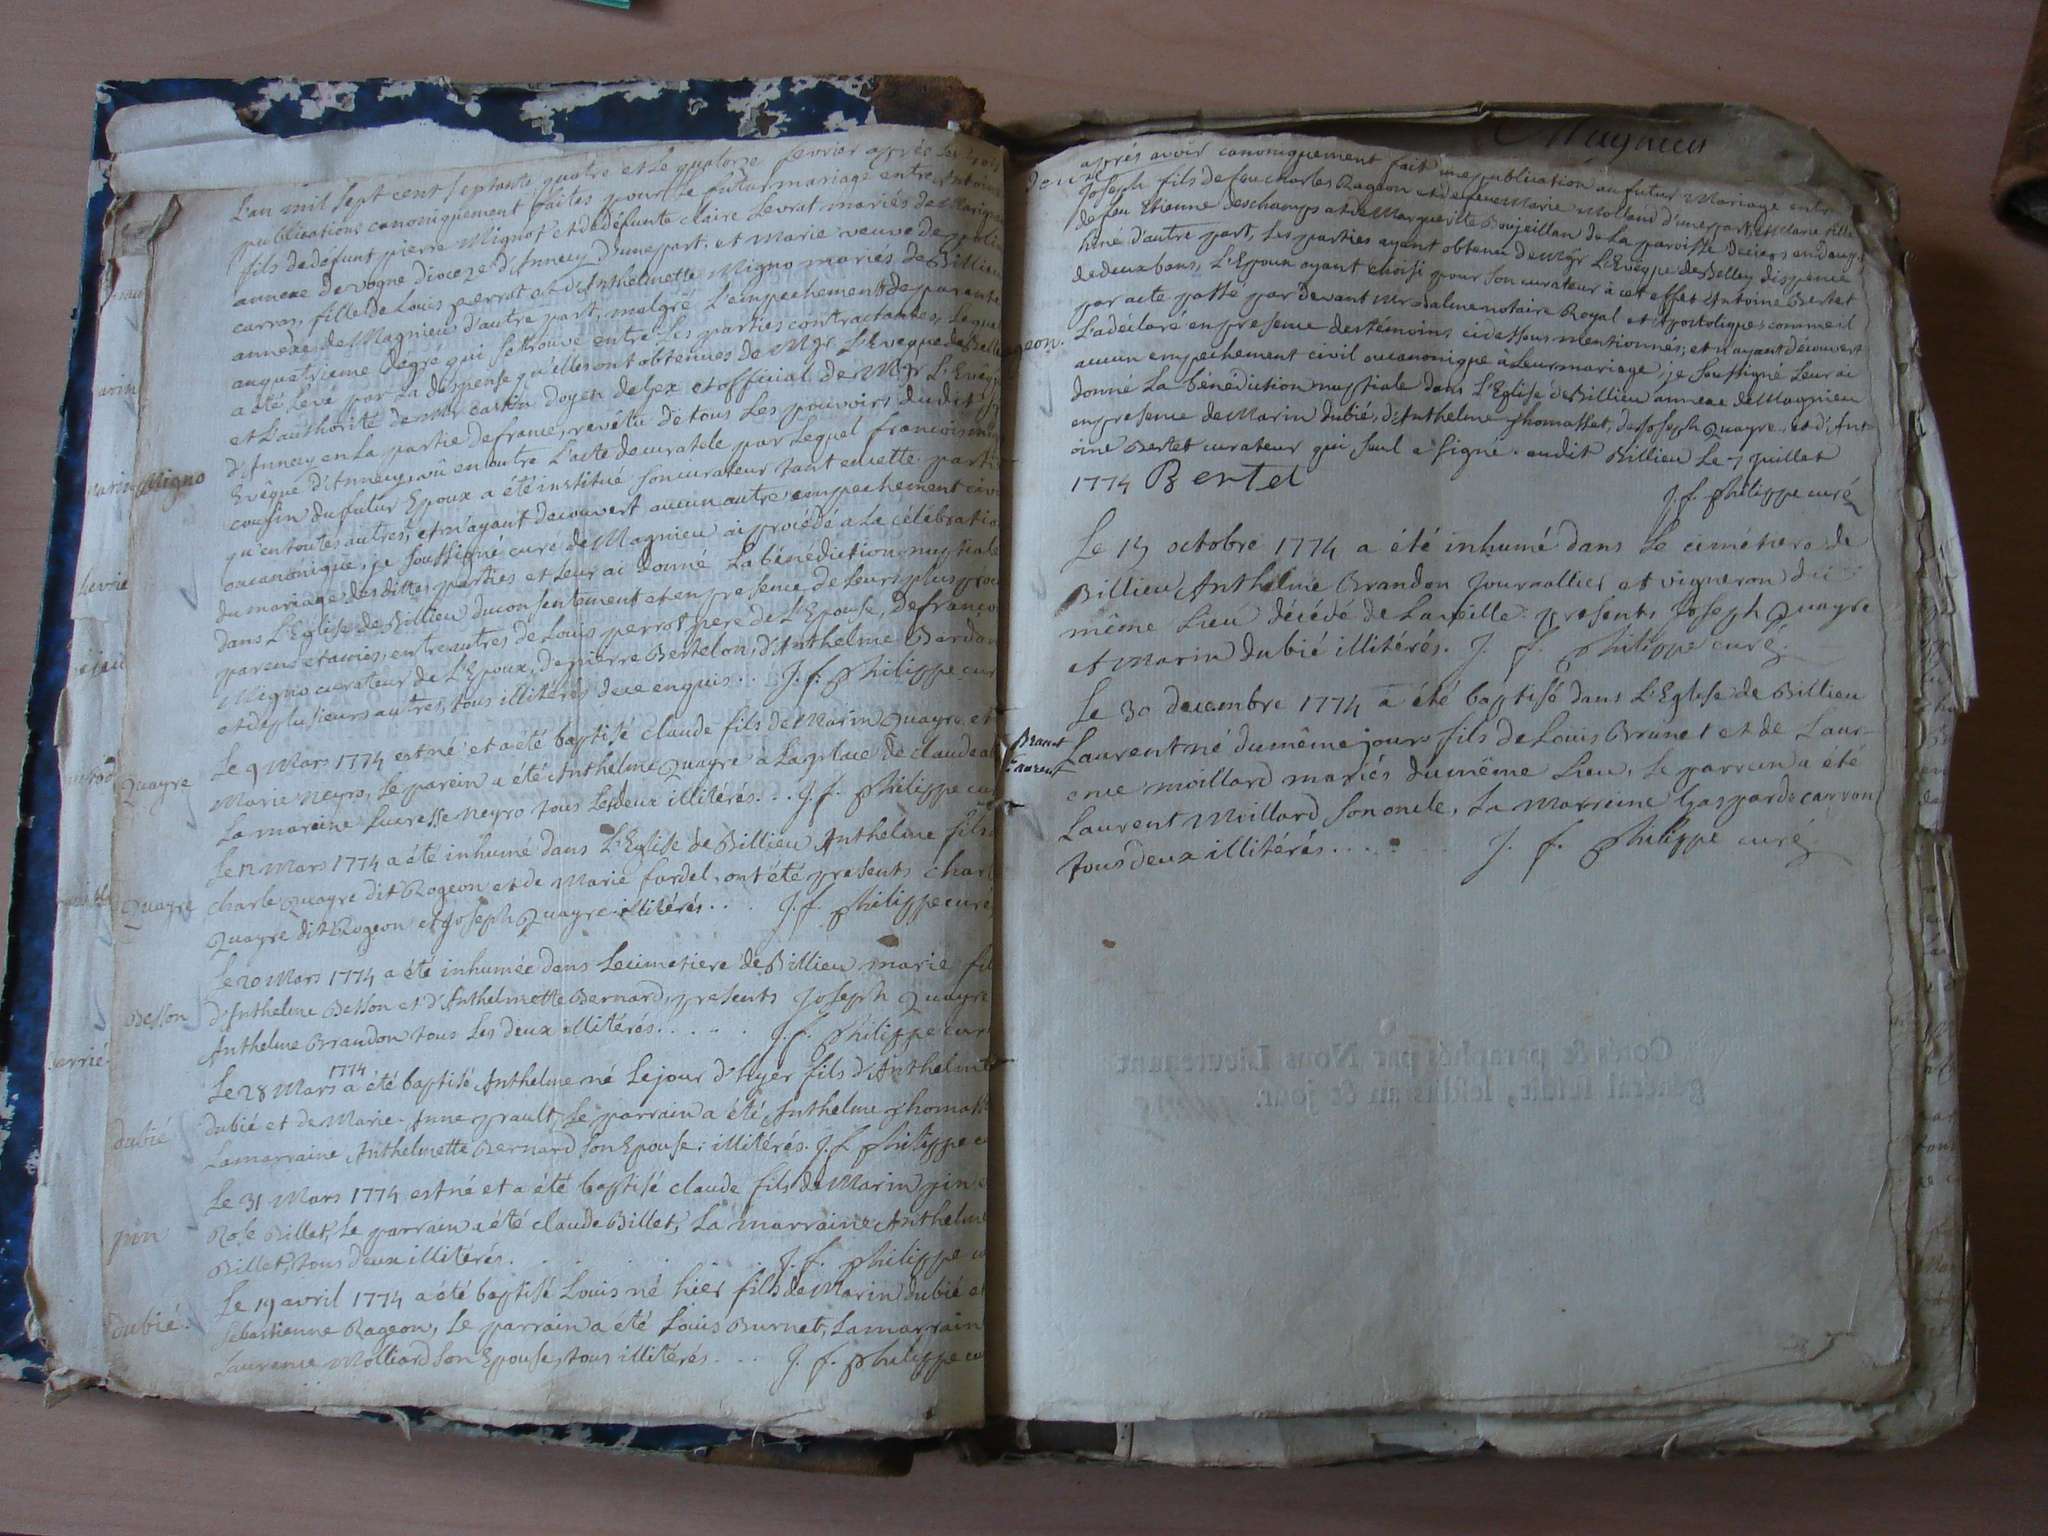 L'an mil sept cent septante quatre et le quatorze fevrier après les trois
publications canoniquement faites pour le futur mariage entre Antoine
fils de défunt pierre Mignot et de défunte claire Levrat mariés de
annexe de vogne dioceze d'Annecy d'une part, et Marie veuve de
carras, fille de Louis perrot et d'Anthelmette Migno mariés de Billieu
annexe de Magnieu d'autre part, malgré L'empechement de parenté
au quatrieme dégré qui se trouve entre Les parties contractantes, Lequel
a été Levé par La dispense qu'elles ont obtenues de Mgr L'Eveque de Belley
et L'authorité de Mr doyen de Gex et official de Mgr L'Evêque
d'Annecy en La partie de france, revêtu de tous Les pouvoirs dudit
Evêque d'Annecy, vû en outre L'acte de curatele par Lequel francois
Migno
cousin du futur Epoux a été institué son curateur tant en cette partie
qu'en toutes autres, et n'ayant decouvert aucun autre empechement civil
ou canonique, je soussigné curé de Magnieu ai procédé a La célébration
du mariage des dittes parties et Leur ai donné La bénédiction nuptiale
dans L'Eglise de Billieu du consentement et en presence de Leurs plus proches
parens et amies, entre autres de Louis perrot pere de L'Epouse, De francois
Migno curateur de L'Epoux, de pierre Bertelon, d'Anthelme Bardon
et de plusieurs autres, tous illitérés de ce enquis.. J. f. philippe curé
Le 9 Mars 1774 est né et a été baptisé claude fils de Marin Quayre et
Quayre
Marie Neyro, Le parein a été Anthelme Quayre à La place de claude
La mareine Lucresse Neyro tous Les deux illitérés... J. f. philippe curé
Le 12 Mars 1774 a été inhumé dans L'Eglise de Billieu Anthelme fils
Quayre
charle Quayre dit Rogeon et de Marie fardel, ont été presents charle
Quayre dit Rogeon et Joseph Quayre illitérés... J. f. philippe curé
Le 20 Mars 1774 a été inhumée dans Le cimetiere de Billieu marie fille
Besson
d'Anthelme Besson et d'Anthelmette Bernard, presents Joseph Quayre
Anthelme Brandon tous Les deux illitérés..... J. f. philippe curé
1774
Le 28 Mars a été baptisé Anthelme né Le jour d'hyer fils d'Anthelme
dubié
dubié et de Marie-Anne prault, Le parrain a été Anthelme
La marraine Anthelmette Bernard son Epouse; illitérés. J. f. philippe
Le 31 Mars 1774 est né et a été baptisé claude fils de Marin pin
pin
Rose Billet, Le parrain a été claude Billet, La marraine Anthelme
Billet, tous deux illitérés. . . . . J. f. philippe
Le 19 avril 1774 a été baptisé Louis né hier fils de Marin dubié et
dubié.
Sebastienne Rageon, Le parrain a été Louis Burnet, La marraine
Laurence Molliard son Epouse, tous illitérés. .. J. f. philippe
Magnieu
après avoir canoniquement fait une publication au futur Mariage entre
Joseph fils de feu charles Rageon et de feue Marie Mollard d'une part, et Marie fille
de feu Etienne deschamps et de Marguerite Boujeillan de La paroisse
d'autre part, Les parties ayant obtenu de Mgr L'Evêque de Belley dispence
de deux bans, L'Epoux ayant choisi pour son curateur à cet effet Antoine Bertet
par acte passé par devant Mr Balme notaire Royal et Apostolique, comme il
L'a déclaré en presence des témoins ci dessous mentionnés; et n'ayant découvert
aucun empechement civil ou canonique à Leur mariage, je soussigné Leur ai
donné La bénédiction nuptiale dans L'Eglise de Billieu annexe de Magnieu
en presence de Marin dubié, d'Anthelme thomasset, de Joseph Quayre, et d'Ant-
oine Bertet curateur qui seul a signé. audit Billieu Le 7 Juillet
1774 Bertet
J. f. philippe curé
Le octobre 1774 a été inhumé dans Le cimétiere de
Billieu Anthelme Brandon Journallier et vigneron du
même Lieu décédé de La veille: presents Joseph Quayre
et Marin dubié illitérés. J. f. philippe curé.
Le 30 decembre 1774 a été baptisé dans L'Eglise de Billieu
Brunet
Laurent
Laurent né du même jour fils de Louis Brunet et de Laur-
ence moillard mariés du même Lieu, Le parrein a été
Laurent Moillard son oncle, La Marreine Gasparde carron
tous deux illitérés...... J. f. philippe curé
Cotés & paraphés par Nous Lieutenant
général susdit, lesdits an & jour.